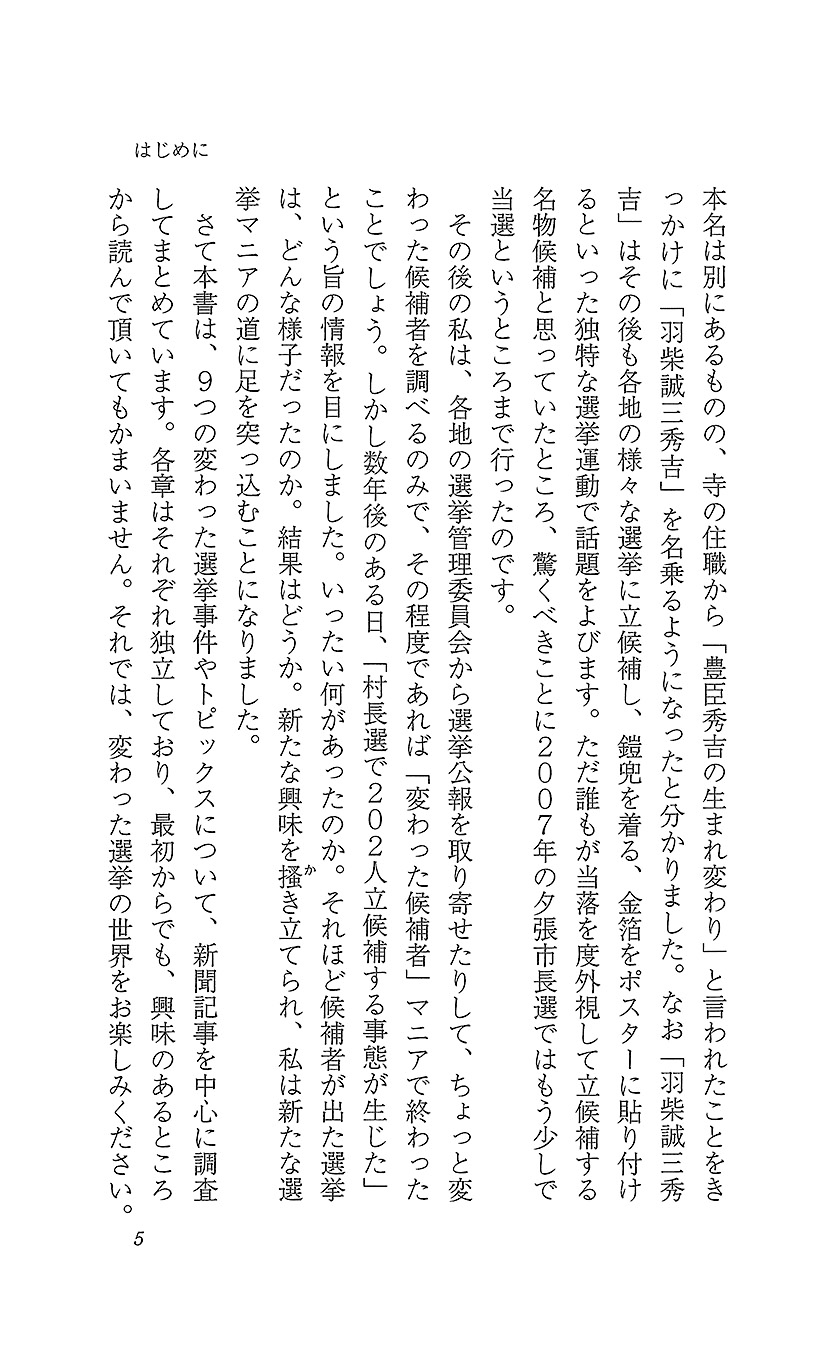 はじめに
本名は別にあるものの、寺の住職から「豊臣秀吉の生まれ変わり」と言われたことをき
っかけに「羽柴誠三秀吉」を名乗るようになったと分かりました。なお「羽柴誠三秀
吉」はその後も各地の様々な選挙に立候補し、鎧兜を着る、金箔をポスターに貼り付け
るといった独特な選挙運動で話題をよびます。ただ誰もが当落を度外視して立候補する
名物候補と思っていたところ、驚くべきことに2007年の夕張市長選ではもう少しで
当選というところまで行ったのです。
その後の私は、各地の選挙管理委員会から選挙公報を取り寄せたりして、ちょっと変
わった候補者を調べるのみで、その程度であれば「変わった候補者」マニアで終わった
ことでしょう。しかし数年後のある日、「村長選で202人立候補する事態が生じた」
という旨の情報を目にしました。いったい何があったのか。それほど候補者が出た選挙
は、どんな様子だったのか。結果はどうか。新たな興味を掻き立てられ、私は新たな選
か
挙マニアの道に足を突っ込むことになりました。
さて本書は、9つの変わった選挙事件やトピックスについて、新聞記事を中心に調査
してまとめています。各章はそれぞれ独立しており、最初からでも、興味のあるところ
から読んで頂いてもかまいません。それでは、変わった選挙の世界をお楽しみください。
5